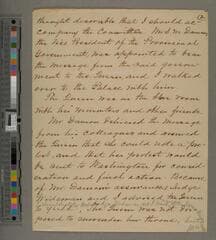 thought desirable that I should ac-
company the Committee. Mr S. M. Damon,
the Vice President of the Provisional
Government was appointed to bear
the message from the said govern-
ment to the Queen, and I walked
over to the Palace with him.
The Queen was in the blue room
with her ministers and other friends.
Mr Damon delivered the message
from his colleagues and assured
the Queen that she could make a pro-
test, and that her protest would
be sent to Washington for consid-
eration and final action. Because
of Mr Damon's assurances Judge
Widemann and I advised the Queen
to yield. The Queen was not dis-
posed to surrender her throne